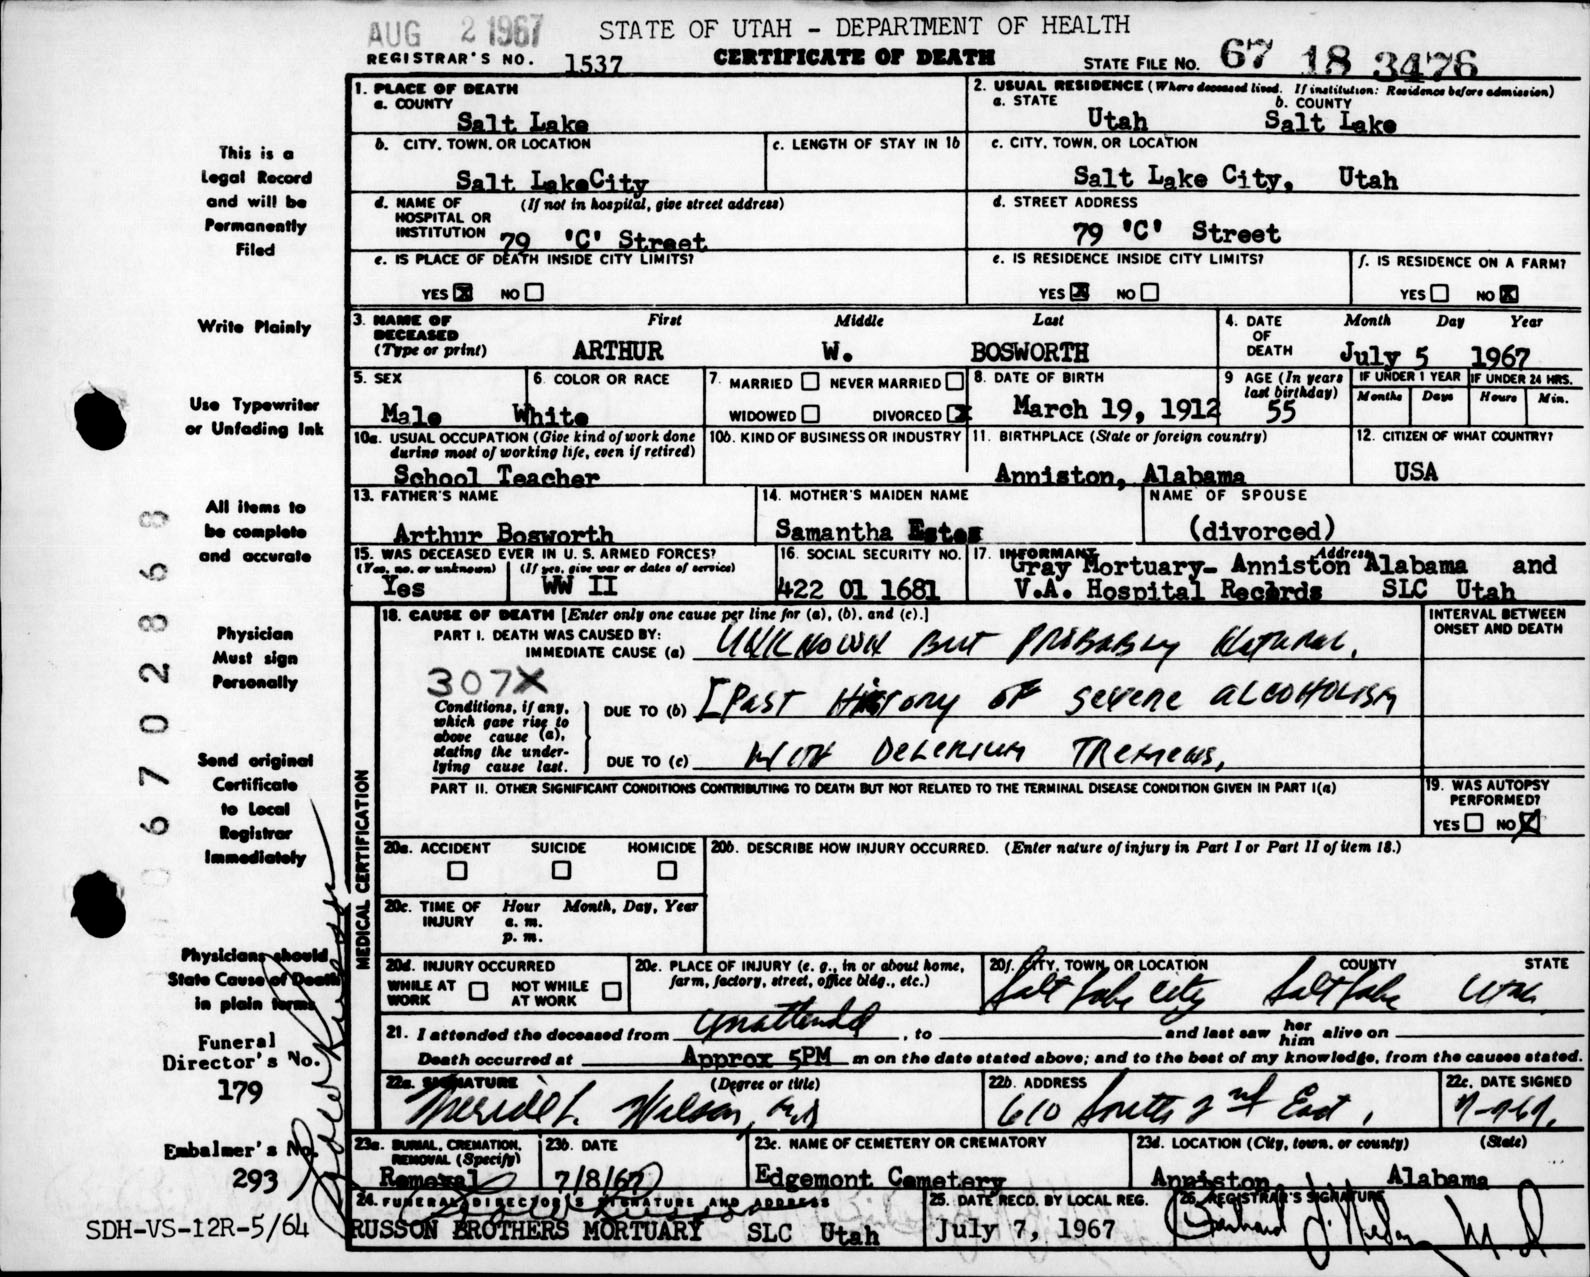 AUG 2 1967
STATE OF UTAH - DEPARTMENT OF HEALTH
REGISTRAR'S NO. 1537
CERTIFICATE OF DEATH
STATE FILE NO. 67 18 3476
This is a
Legal Record
and will be
Permanently
Filed
Write Plainly
Use Typewriter
or Unfading Ink
All items to
be complete
and accurate
Physician
Must sign
Personally
Send original
Certificate
to Local
Registrar
Immediately
Physicians should
State Cause of Death
in plain terms
Funeral
Director's No.
179
Embalmer's No.
293
SDH-VS-12R-5/64
067028 68
1. PLACE OF DEATH
a. COUNTY
Salt Lake
2. USUAL RESIDENCE (Where deceased lived. If institution: Residence before admission)
a. STATE b. COUNTY
Utah Salt Lake
b. CITY, TOWN, OR LOCATION
Salt LakeCity
c. LENGTH OF STAY IN 1b
c. CITY, TOWN, OR LOCATION
Salt Lake City, Utah
d. NAME OF (If not in hospital, give street address)
HOSPITAL OR
INSTITUTION 79 'C' Street
d. STREET ADDRESS
79 'C' Street
e. IS PLACE OF DEATH INSIDE CITY LIMITS?
YES X NO
e. IS RESIDENCE INSIDE CITY LIMITS?
YES X NO
f. IS RESIDENCE ON A FARM?
YES NO X
3. NAME OF First Middle Last
DECEASED
(Type or print) ARTHUR W. BOSWORTH
4. DATE Month Day Year
OF
DEATH July 5 1967
5. SEX
Male
6. COLOR OR RACE
White
7. MARRIED NEVER MARRIED
WIDOWED DIVORCED X
8. DATE OF BIRTH
March 19, 1912
9 AGE (In years
last birthday)
55
IF UNDER 1 YEAR
Months Days
IF UNDER 24 HRS.
Hours Min.
10a. USUAL OCCUPATION (Give kind of work done
during most of working life, even if retired)
School Teacher
10b. KIND OF BUSINESS OR INDUSTRY
11. BIRTHPLACE (State or foreign country)
Anniston, Alabama
12. CITIZEN OF WHAT COUNTRY?
USA
13. FATHER'S NAME
Arthur Bosworth
14. MOTHER'S MAIDEN NAME
Samantha Estes
NAME OF SPOUSE
(divorced)
15. WAS DECEASED EVER IN U. S. ARMED FORCES?
(Yes, no. or unknown) (If yes, give war or dates of service)
Yes WW II
16. SOCIAL SECURITY NO.
422 01 1681
17. INFORMANT Address
Gray Mortuary- Anniston Alabama and
V.A. Hospital Records SLC Utah
MEDICAL CERTIFICATION
18. CAUSE OF DEATH [Enter only one cause per line for (a), (b), and (c).]
PART I. DEATH WAS CAUSED BY:
IMMEDIATE CAUSE (a) UNKNOWN BUT PROBABLY NATURAL.
INTERVAL BETWEEN
ONSET AND DEATH
307X
Conditions, if any,
which gave rise to
above cause (a),
stating the under-
lying cause last.
DUE TO (b) [PAST HISTORY OF SEVERE ALCOHOLISM
DUE TO (c) WITH DELERIUM TREMENS,
PART II. OTHER SIGNIFICANT CONDITIONS CONTRIBUTING TO DEATH BUT NOT RELATED TO THE TERMINAL DISEASE CONDITION GIVEN IN PART I(a)
19. WAS AUTOPSY
PERFORMED?
YES NO X
20a. ACCIDENT SUICIDE HOMICIDE
20b. DESCRIBE HOW INJURY OCCURRED. (Enter nature of injury in Part I or Part II of item 18.)
20c. TIME OF Hour Month, Day, Year
INJURY a. m.
p. m.
20d. INJURY OCCURRED
WHILE AT NOT WHILE
WORK AT WORK
20e. PLACE OF INJURY (e. g., in or about home,
farm, factory, street, office bldg., etc.)
20f. CITY, TOWN, OR LOCATION COUNTY STATE
Salt Lake City Salt Lake Utah
21. I attended the deceased from unattended, to and last saw her him alive on
Death occurred at Approx 5PM m on the date stated above; and to the best of my knowledge, from the causes stated.
22a. SIGNATURE (Degree or title)
Wilson, MD
22b. ADDRESS
610 South 2nd East,
22c. DATE SIGNED
23a. BURIAL, CREMATION,
REMOVAL (Specify)
Removal
23b. DATE
7/8/67
23c. NAME OF CEMETERY OR CREMATORY
Edgemont Cemetery
23d. LOCATION (City, town, or county) (State)
Anniston Alabama
24. FUNERAL DIRECTOR'S SIGNATURE AND ADDRESS
RUSSON BROTHERS MORTUARY SLC Utah
25. DATE RECD. BY LOCAL REG.
July 7, 1967
26. REGISTRAR'S SIGNATURE